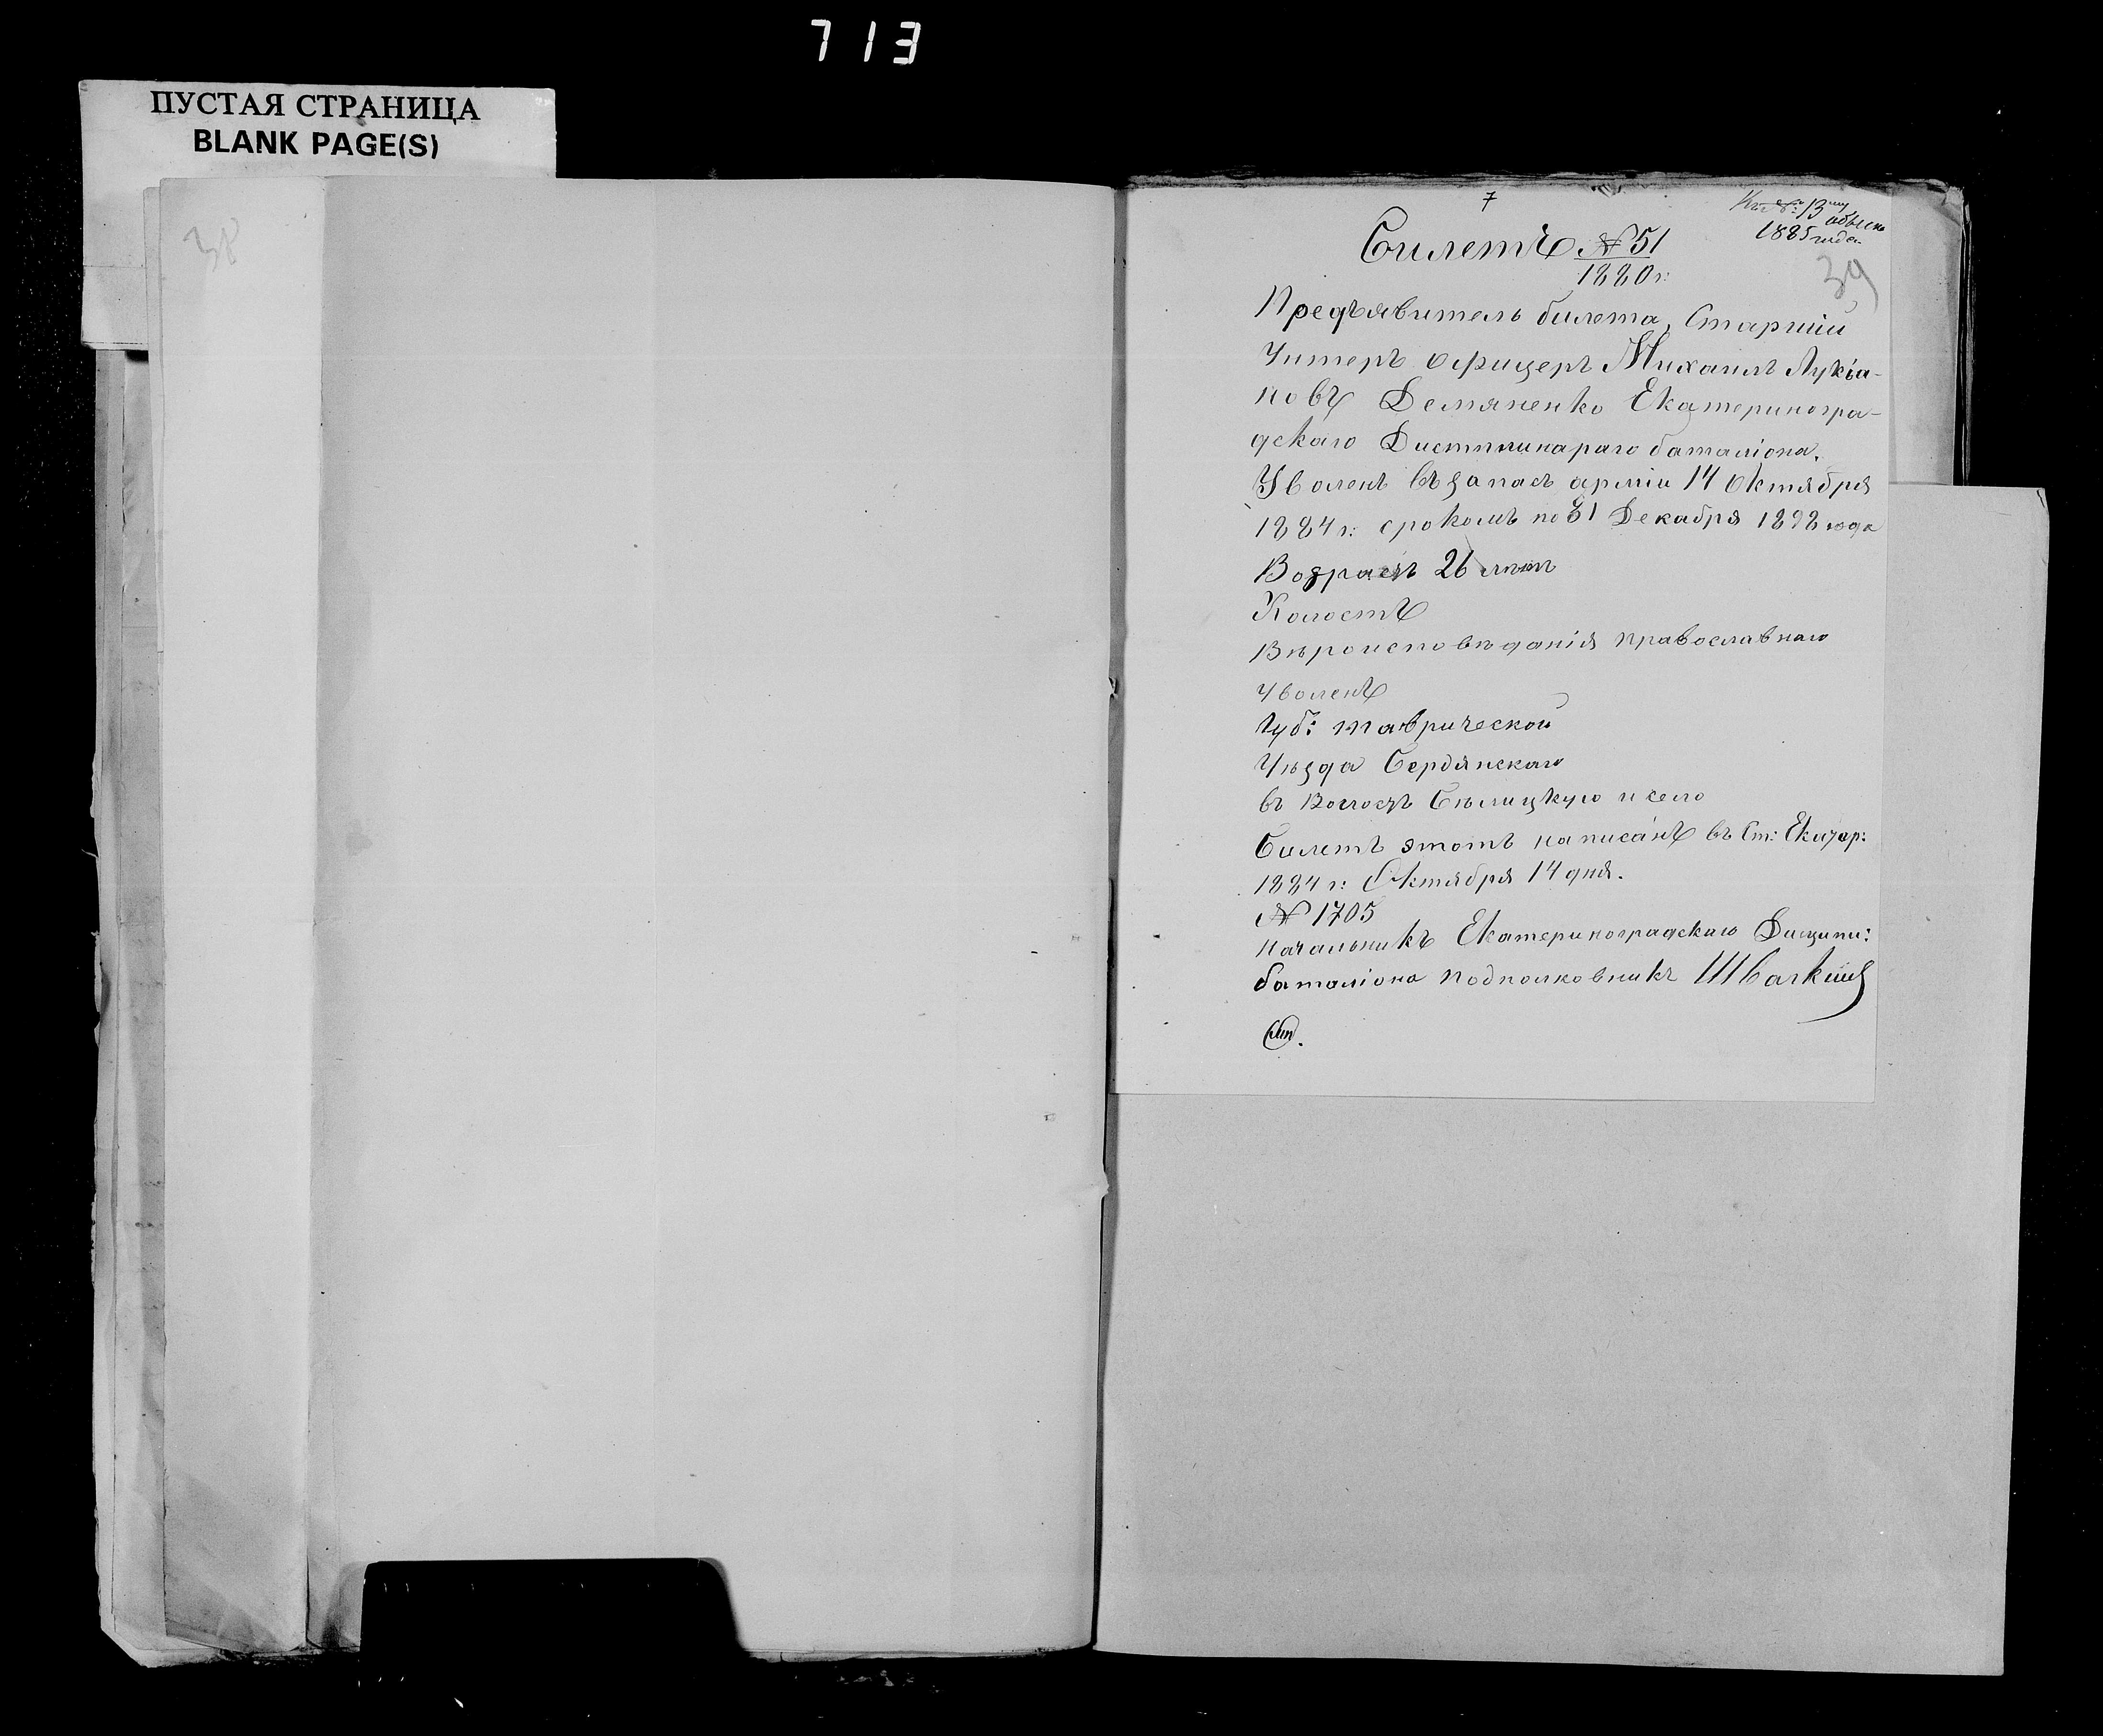 713
ПУСТАЯ СТРАНИЦА
BLANK PAGE(S)
38
7
13му обыску
1885 года
39
Билетъ № 51
1880 г:
Предъявитель билета, Старшій
Унтеръ офицеръ Михаилъ Лукіа-
новъ Демяненко Екатериногра-
дскаго баталіона.
Уволенъ въ запасъ арміи 14 Октября
1884 г: срокомъ по 31 Декабря 1898 года
Возрастъ 26 лѣтъ
Холостъ
Вѣроисповѣданія православнаго
Уволенъ
Губ: Таврической
Уѣзда Бердянскаго
въ Волость Бѣлицкую и село
Билетъ этотъ написанъ въ Ст: Екатер:
1884 г: Октября 14 дня.
№ 1705
Начальникъ Екатериноградскаго Дисципи:
баталіона Подполковникъ